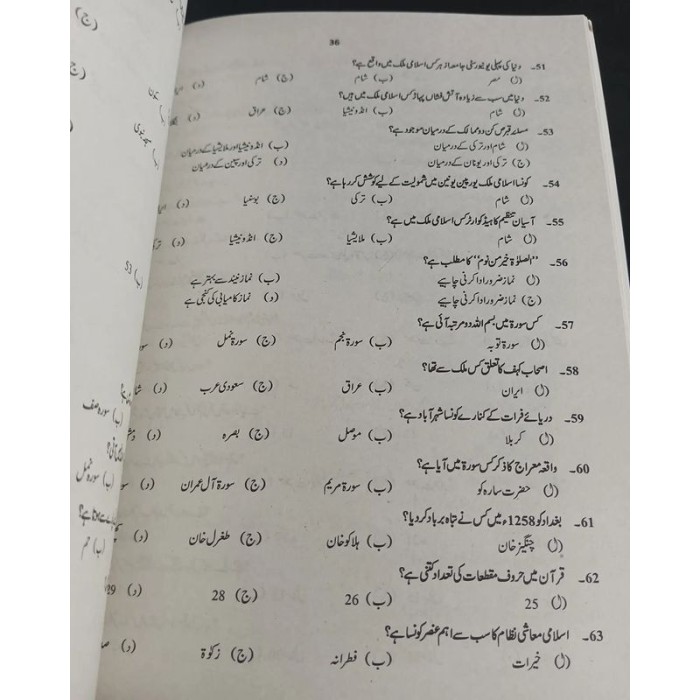 36
51۔ دنیا کی پہلی یونیورسٹی جامعہ ازہر کس اسلامی ملک میں واقع ہے؟
(ا) مصر (ب) شام (ج) شام (د)
52۔ دنیا میں سب سے زیادہ آتش فشاں پہاڑ کس اسلامی ملک میں ہیں؟
(ا) شام (ب) انڈونیشیا (ج) عراق (د)
53۔ مسئلہ قبرص کن دو ممالک کے درمیان موجود ہے؟
(ا) شام اور ترکی کے درمیان (ب) انڈونیشیا اور ملائیشیا کے درمیان
(ج) ترکی اور یونان کے درمیان (د) ترکی اور سپین کے درمیان
54۔ کونسا اسلامی ملک یورپین یونین میں شمولیت کے لیے کوشش کر رہا ہے؟
(ا) شام (ب) ترکی (ج) بوسنیا (د)
55۔ آسیان تنظیم کا ہیڈ کوارٹر کس اسلامی ملک میں ہے؟
(ا) شام (ب) ملایشیا (ج) انڈونیشیا (د) ترکی
56۔ "الصلوٰۃ خیر من نوم" کا مطلب ہے؟
(ا) نماز ضرور ادا کرنی چاہیے (ب) نماز نیند سے بہتر ہے
(ج) نماز ضرور ادا کرنی چاہیے (د) نماز کامیابی کی کنجی ہے
57۔ کس سورۃ میں بسم اللہ دو مرتبہ آئی ہے؟
(ا) سورۃ توبہ (ب) سورۃ نجم (ج) سورۃ نمل (د)
58۔ اصحاب کہف کا تعلق کس ملک سے تھا؟
(ا) ایران (ب) عراق (ج) سعودی عرب (د)
59۔ دریائے فرات کے کنارے کونسا شہر آباد ہے؟
(ا) کربلا (ب) موصل (ج) بصرہ (د)
60۔ واقعہ معراج کا ذکر کس سورۃ میں آیا ہے؟
(ا) حضرت سارہ کو (ب) سورۃ مریم (ج) سورۃ آل عمران (د)
61۔ بغداد کو 1258ء میں کس نے تباہ برباد کر دیا؟
(ا) چنگیز خان (ب) ہلاکو خان (ج) طغرل خان (د)
62۔ قرآن میں حروف مقطعات کی تعداد کتنی ہے؟
(ا) 25 (ب) 26 (ج) 28 (د) 29
63۔ اسلامی معاشی نظام کا سب سے اہم عنصر کونسا ہے؟
(ا) خیرات (ب) فطرانہ (ج) زکوٰۃ (د)
(ج)
(ج)
(ب) 53
(ب) سورہ صف
(ب) سورہ نمل